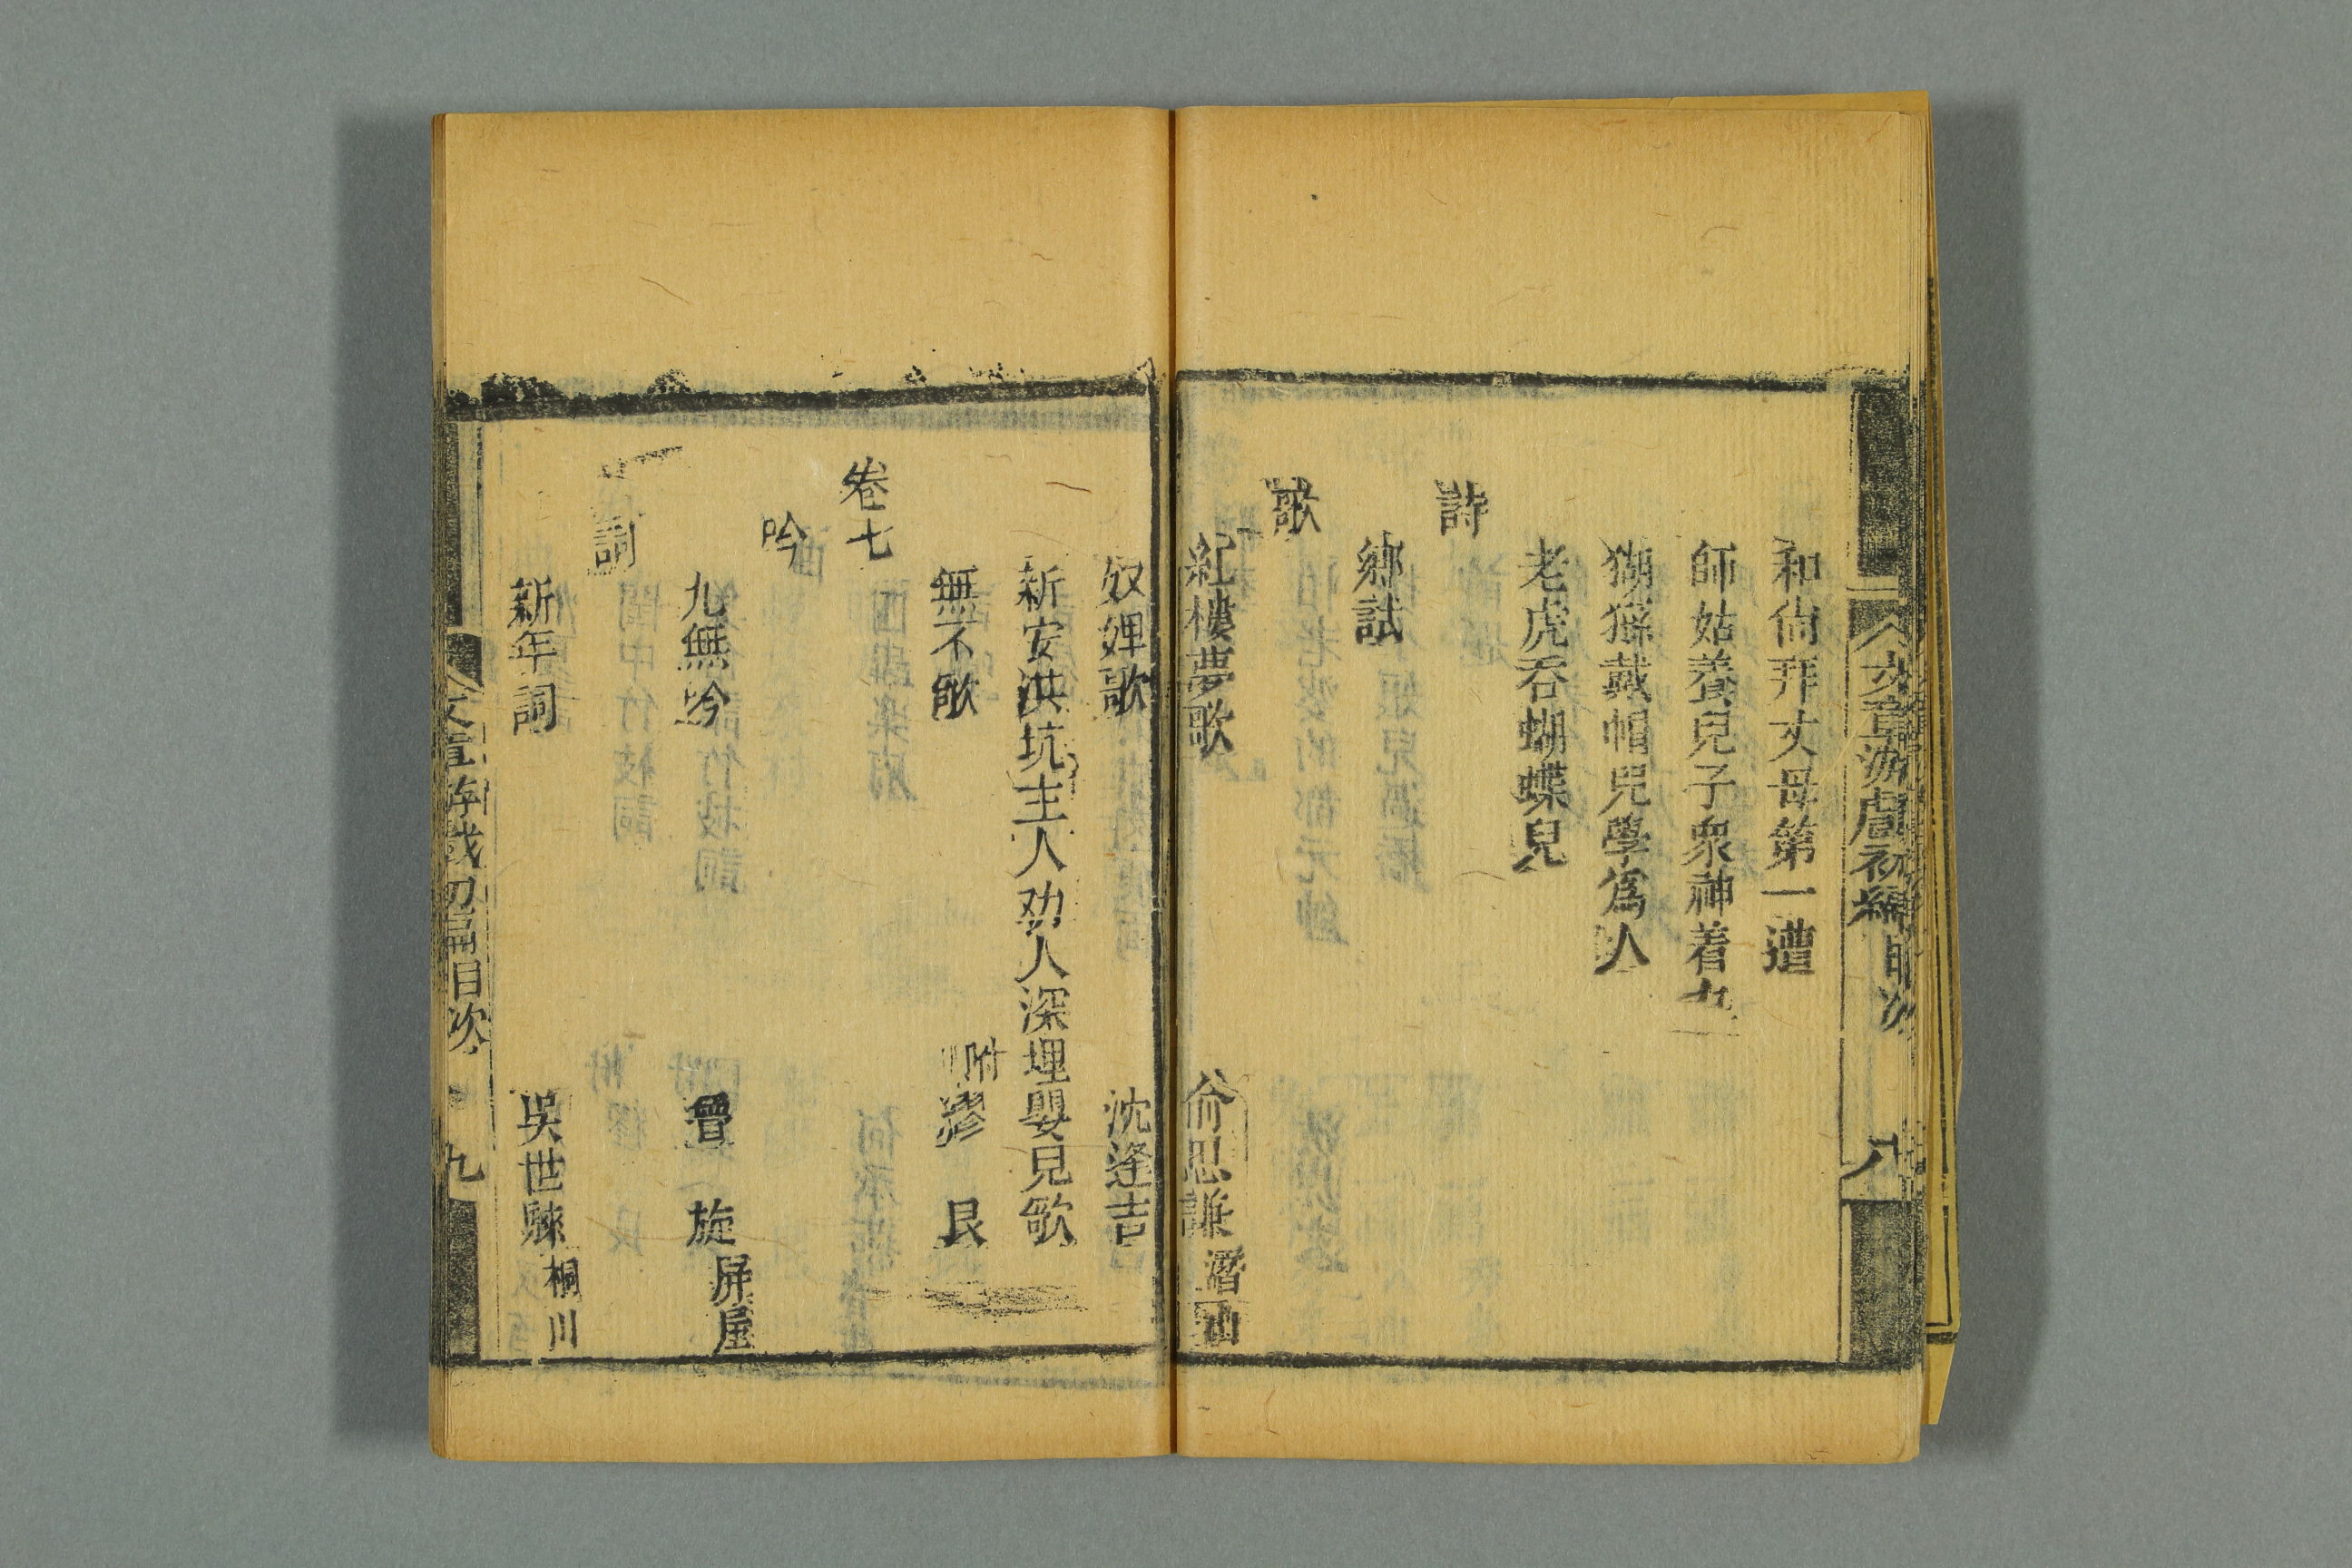 文章游戲初編 目次 八
和尙拜丈母第一遭
師姑養兒子衆神着力
猢猻戴帽兒學爲人
老虎吞蝴蝶兒
詩
鄉試
歌
紅樓夢歌 俞思謙 潛山
奴婢歌 沈逢吉
新安洪坑主人劝人深埋嬰兒歌
無不歌 附 繆艮
卷七
吟
九無吟 曾旋 屏屋
詞
新年詞 吳世騋 桐川
文章游戲初編目次 九